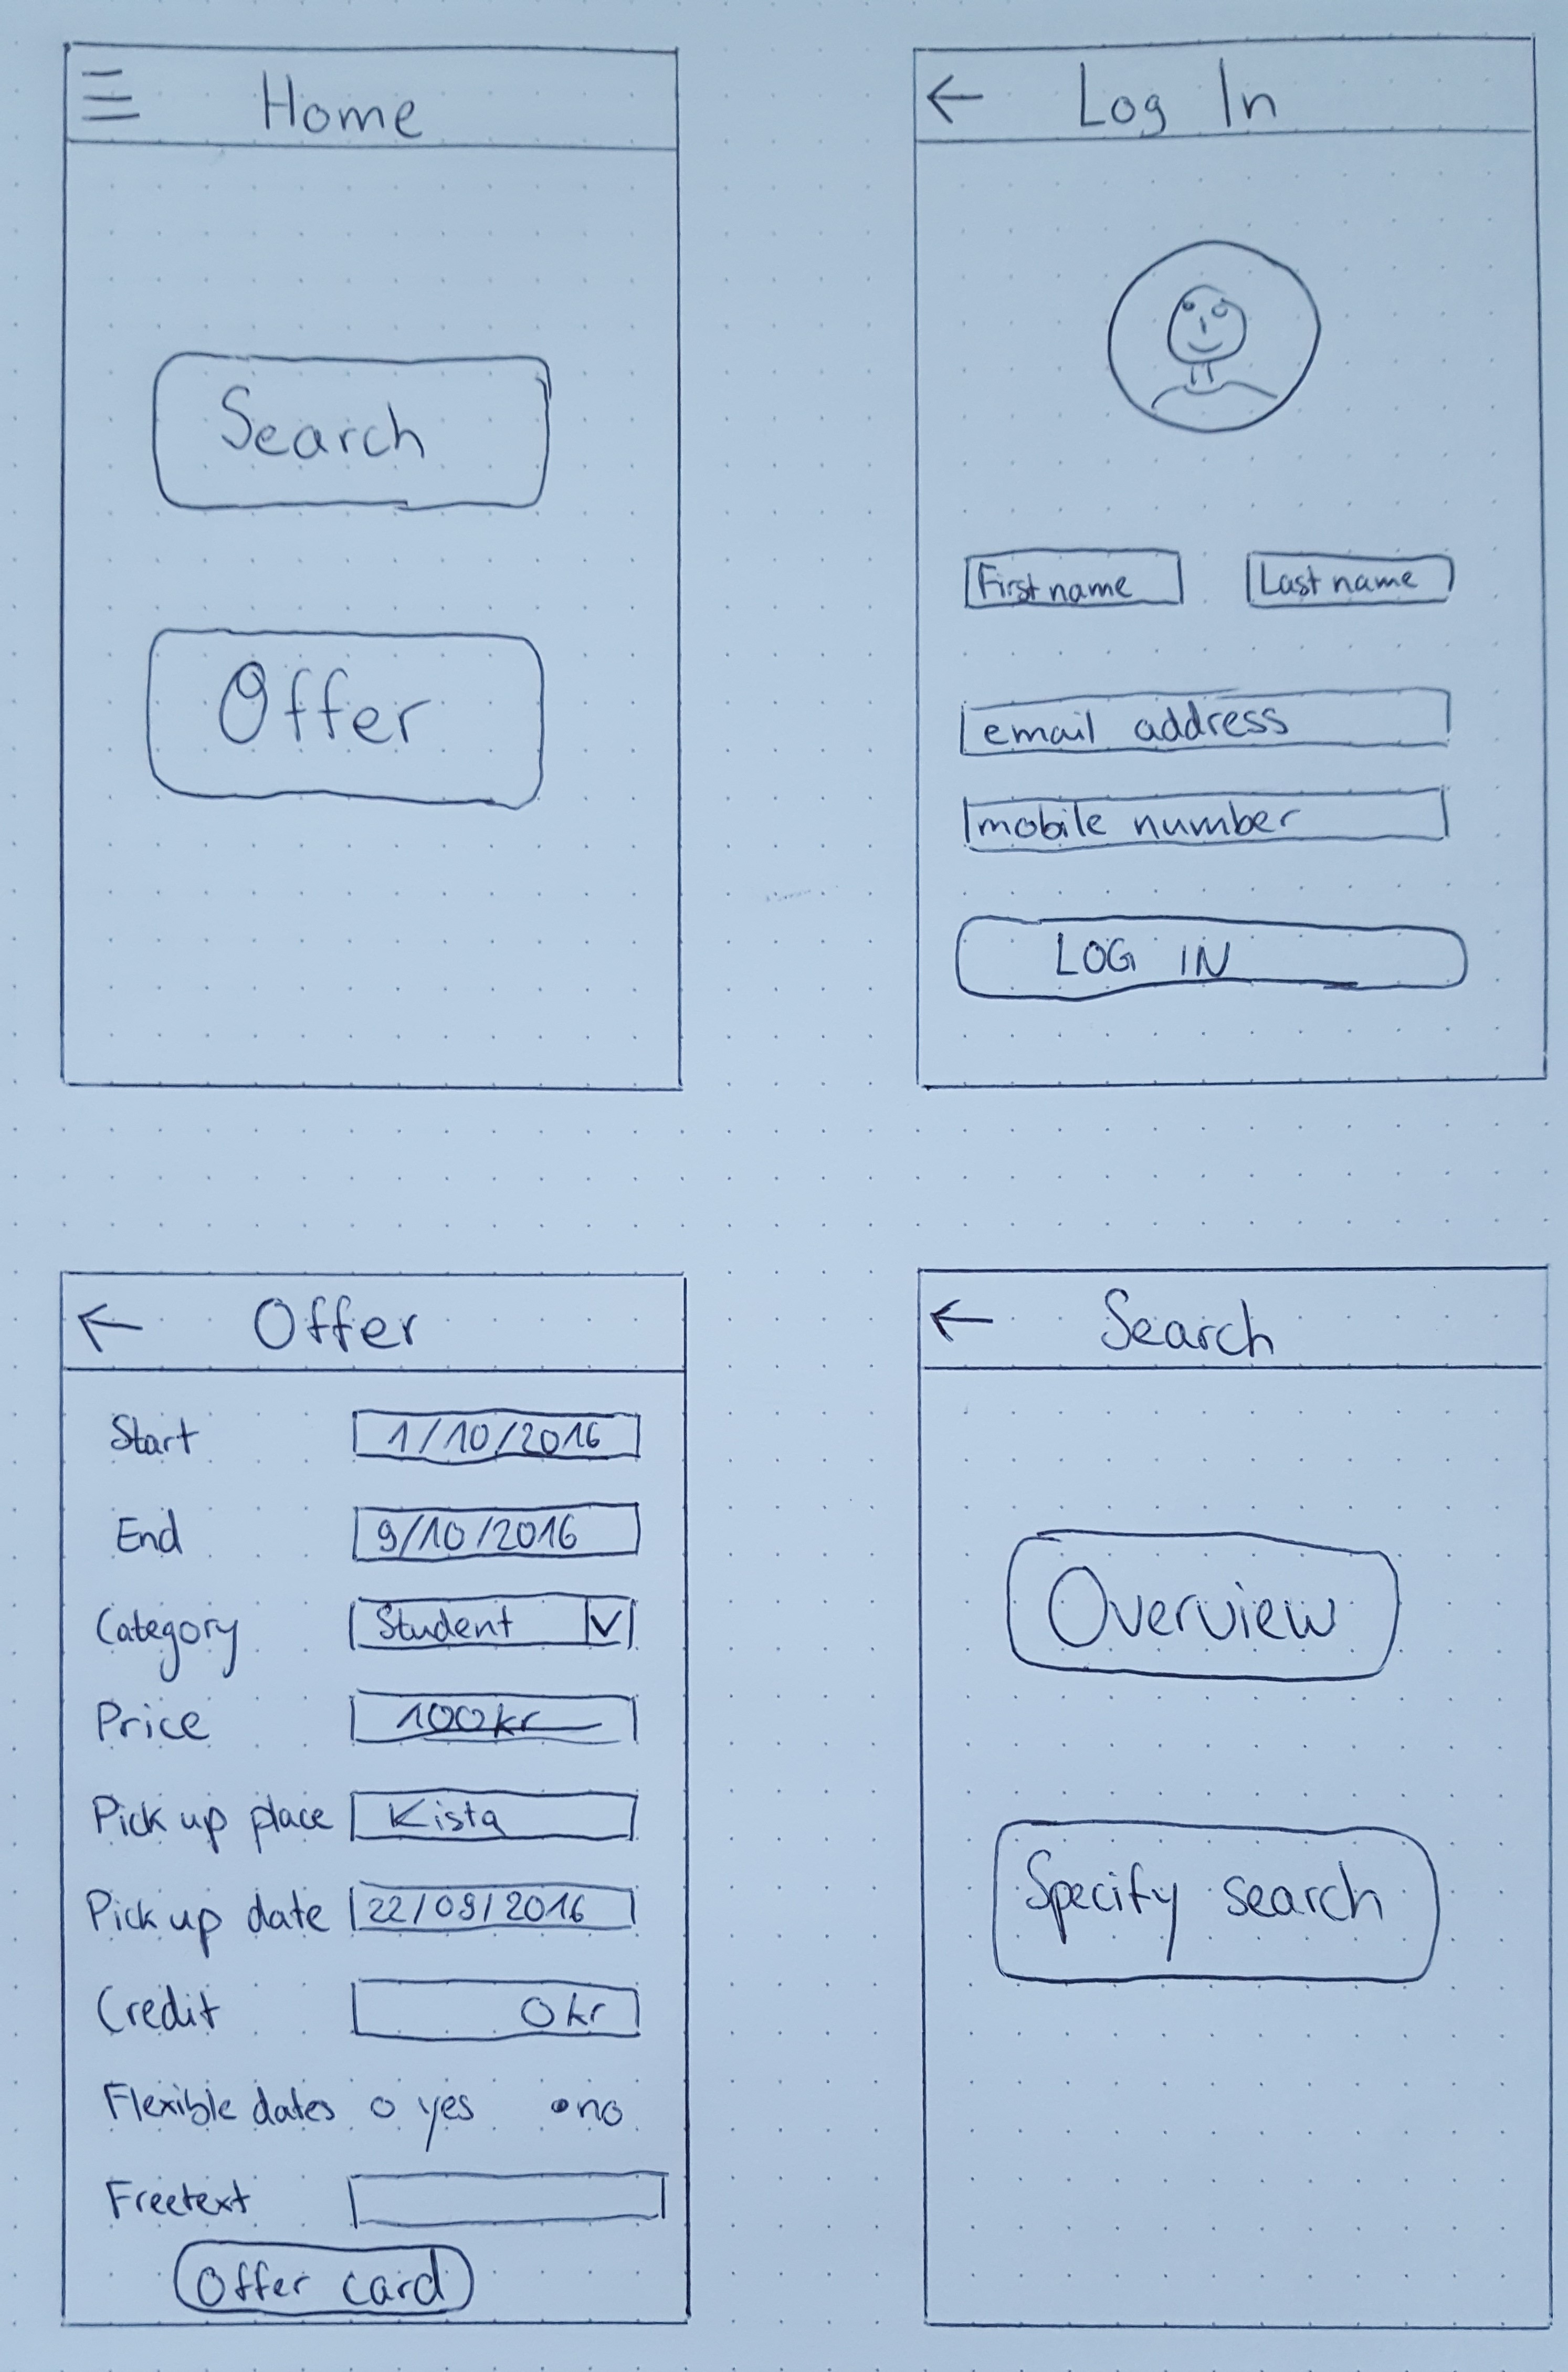 Home
Search
Offer
Log In
First name
Last name
email address
mobile number
LOG IN
Offer
Start 1/10/2016
End 9/10/2016
Category Student
Price 100kr
Pick up place Kista
Pick up date 22/09/2016
Credit 0kr
Flexible dates yes no
Freetext
Offer card
Search
Overview
Specify search